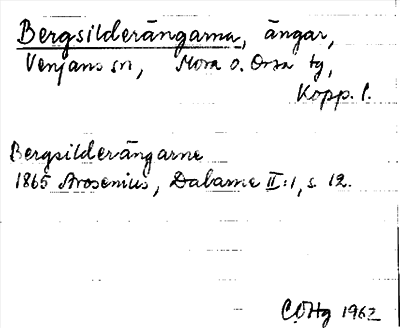 Bergsilderängarna, ängar,
Venjans sn, Mora o. Orsa tg,
Kopp. l.
Bergsilderängarne
1865 Arosenius, Dalarne II:1, s. 12.
CÖHg 1962